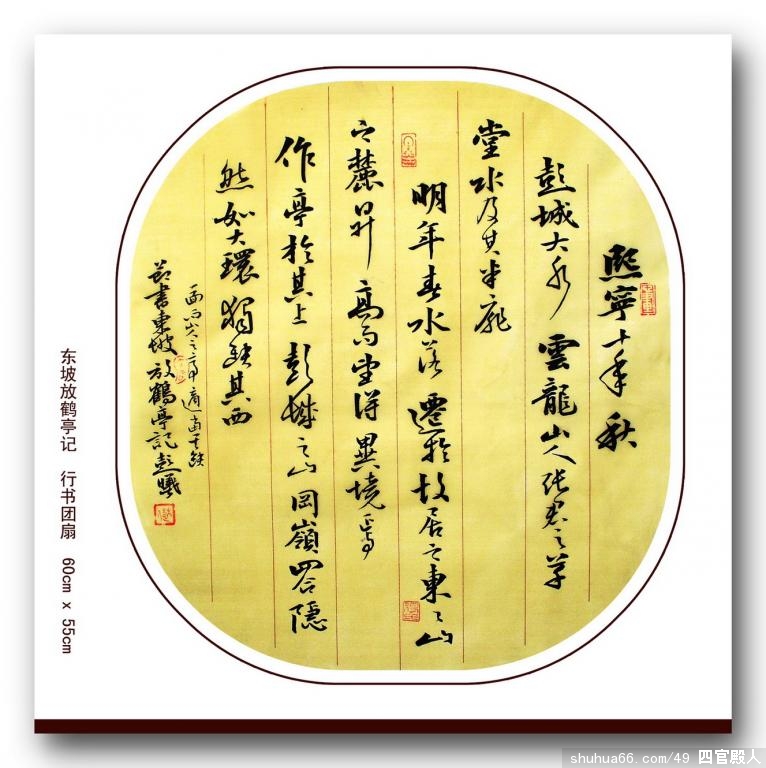 熙寧十年秋
彭城大水雲龍山人張君之草
堂水及其半扉
明年春水落遷於故居之東〻山
之麓昇高而望得異境焉
作亭於其上彭城之山岡嶺四合隱
然如大環獨缺其西
一面而山人之亭適當其缺
節書東坡放鶴亭記彭曦
东坡放鹤亭记 行书团扇 60cm x 55cm
shuhua66.com/49 四官殿人